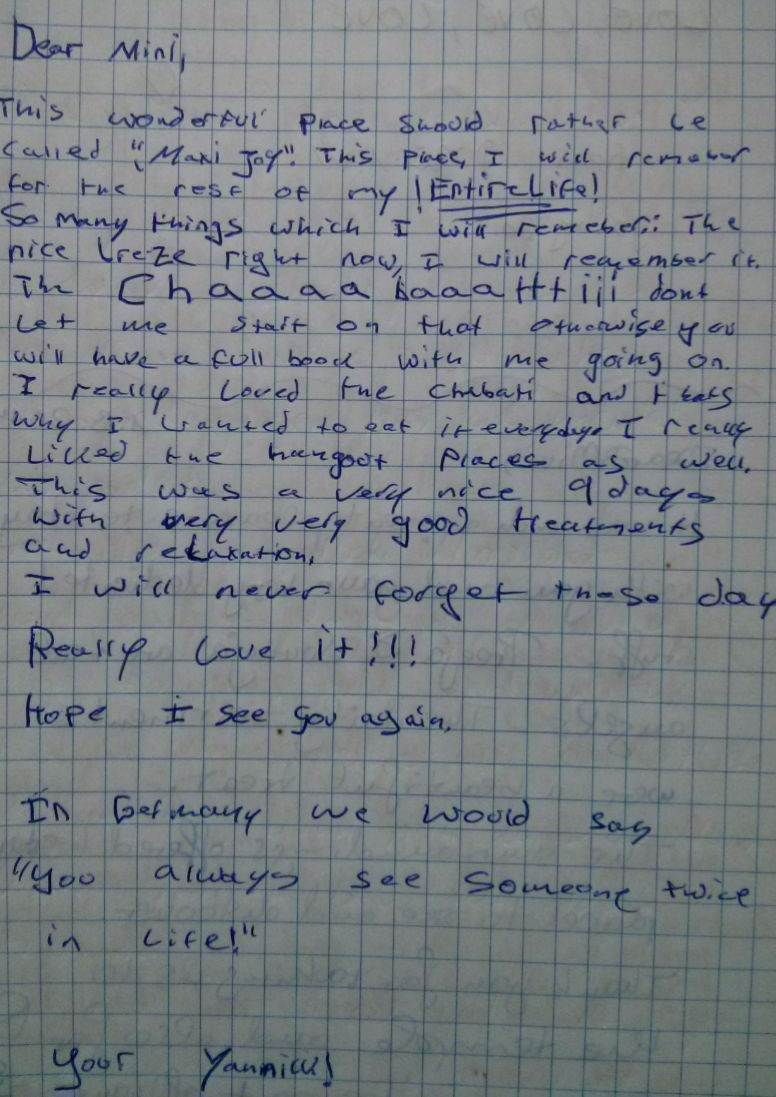 Dear Mini,
This wonderful place should rather be
called "Maxi Joy". This place, I will remember
for the rest of my !EntireLife!
So many things which I will remeber: The
nice breze right now, I will remember it.
The Chaaaa baaattiii dont
Let me start on that otherwise you
will have a full book with me going on.
I really loved the Chabati and thats
why I wanted to eat it everyday. I really
Liked the hangout places as well.
This was a very nice 9 days
With very very good treatments
and relaxation.
I will never forget those day
Really Love it!!!
Hope I see you again.
In Germany we would say
"you always see someone twice
in Life!"
Your Yannick!